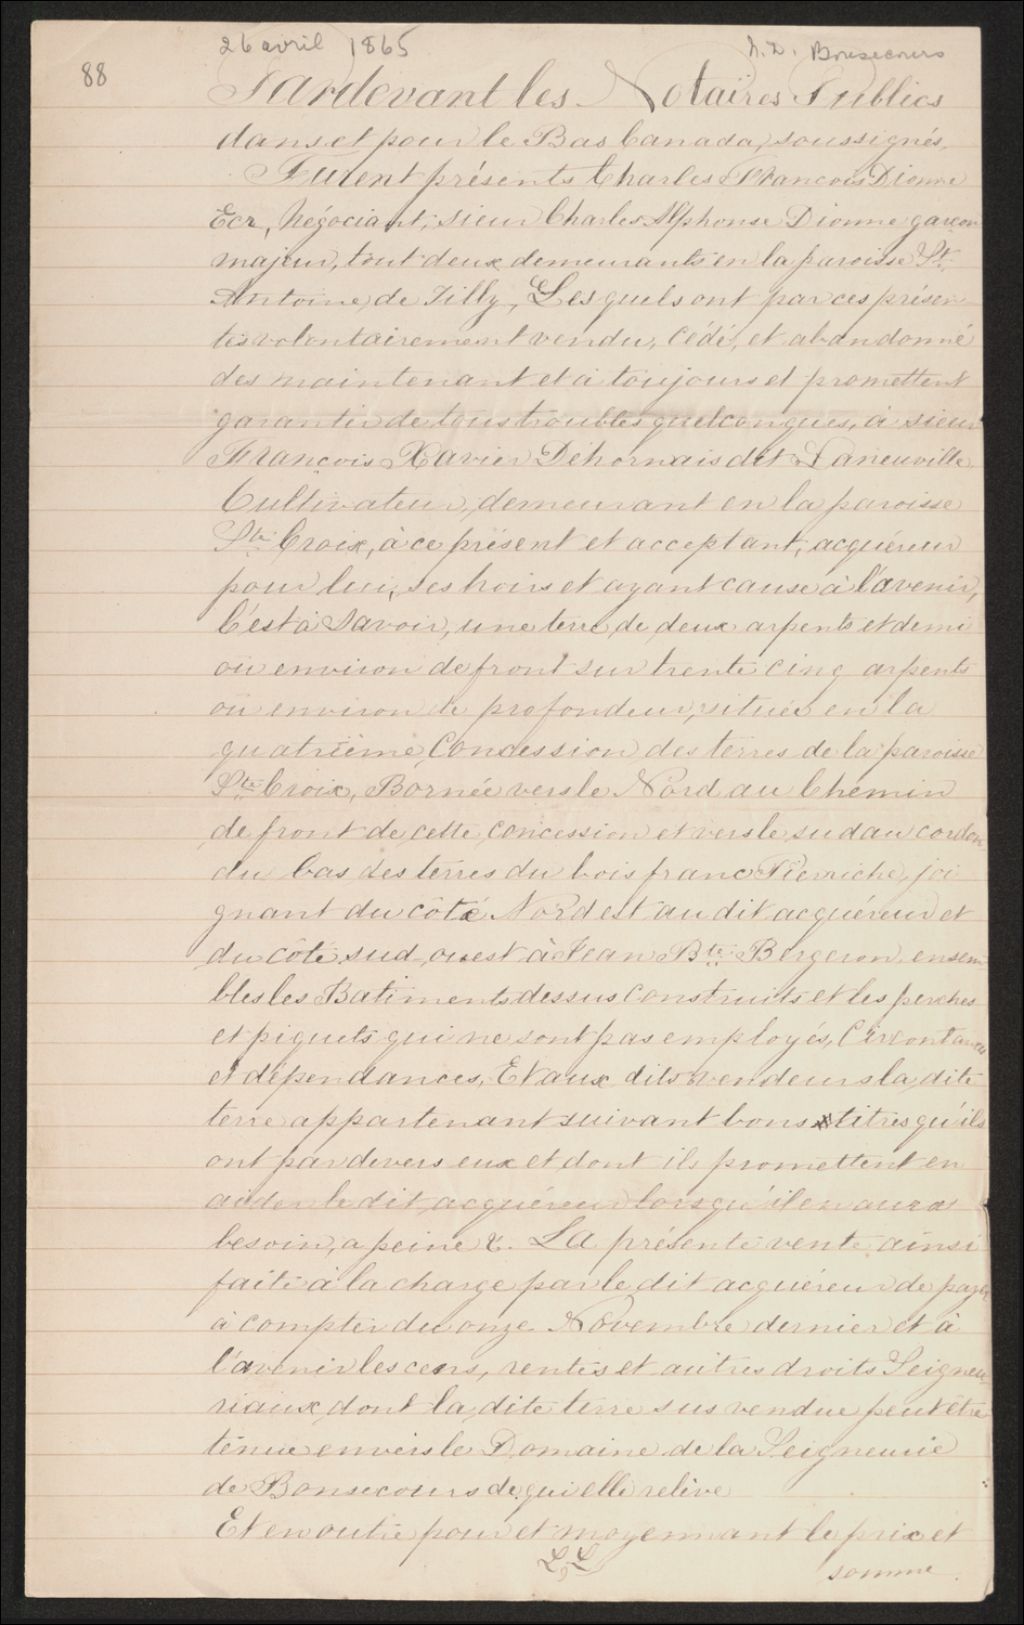 26 avril 1865
N.D. Bonsecours
88
Pardevant les Notaires Publics
dans et pour le Bas Canada, soussignés,
Furent présents Charles François Dionne
Ecr, Négociant, sieur Charles Alphonse Dionne garçon
majeur, tout deux demeurants en la paroisse St.
Antoine de Tilly, Lesquels ont par ces présen
tes volontairement vendu, cédé, et abandonné
des maintenant et à toujours et promettent
garantir de tous troubles quelconques, à sieur
François Xavier Déhornais dit Laneuville
Cultivateur, demeurant en la paroisse
Ste Croix, à ce présent et acceptant, acquéreur
pour lui, ses hoirs et ayant cause à l'avenir,
C'est à Savoir, une terre de deux arpents et demi
ou environ de front sur trente cinq arpents
ou environ de profondeur, située en la
quatrième Concession des terres de la paroisse
Ste Croix, Bornée vers le Nord au Chemin
de front de cette concession et vers le sud au cordon
du bas des terres du bois franc Pierriche, joi
gnant du côté Nord est au dit acquéreur et
du côté sud-ouest à Jean Bte Bergeron, ensem
bles les Batiments dessus construits et les perches
et piquets qui ne sont pas employés, Circontances
et dépendances, Et aux dits vendeurs la dite
terre appartenant suivant bons titres qu'ils
ont par devers eux et dont ils promettent en
aider le dit acquéreur lorsqu'il en aura
besoin, a peine &. La présente vente ainsi
faite à la charge par le dit acquéreur de payer
à compter du onze Novembre dernier et à
l'avenir les cens, rentes et autres droits Seigneu
riaux dont la dite terre sus vendue peut être
tenue envers le Domaine de la Seigneurie
de Bonsecours de qui elle relève
Et en outre pour et moyennant le prix et
somme